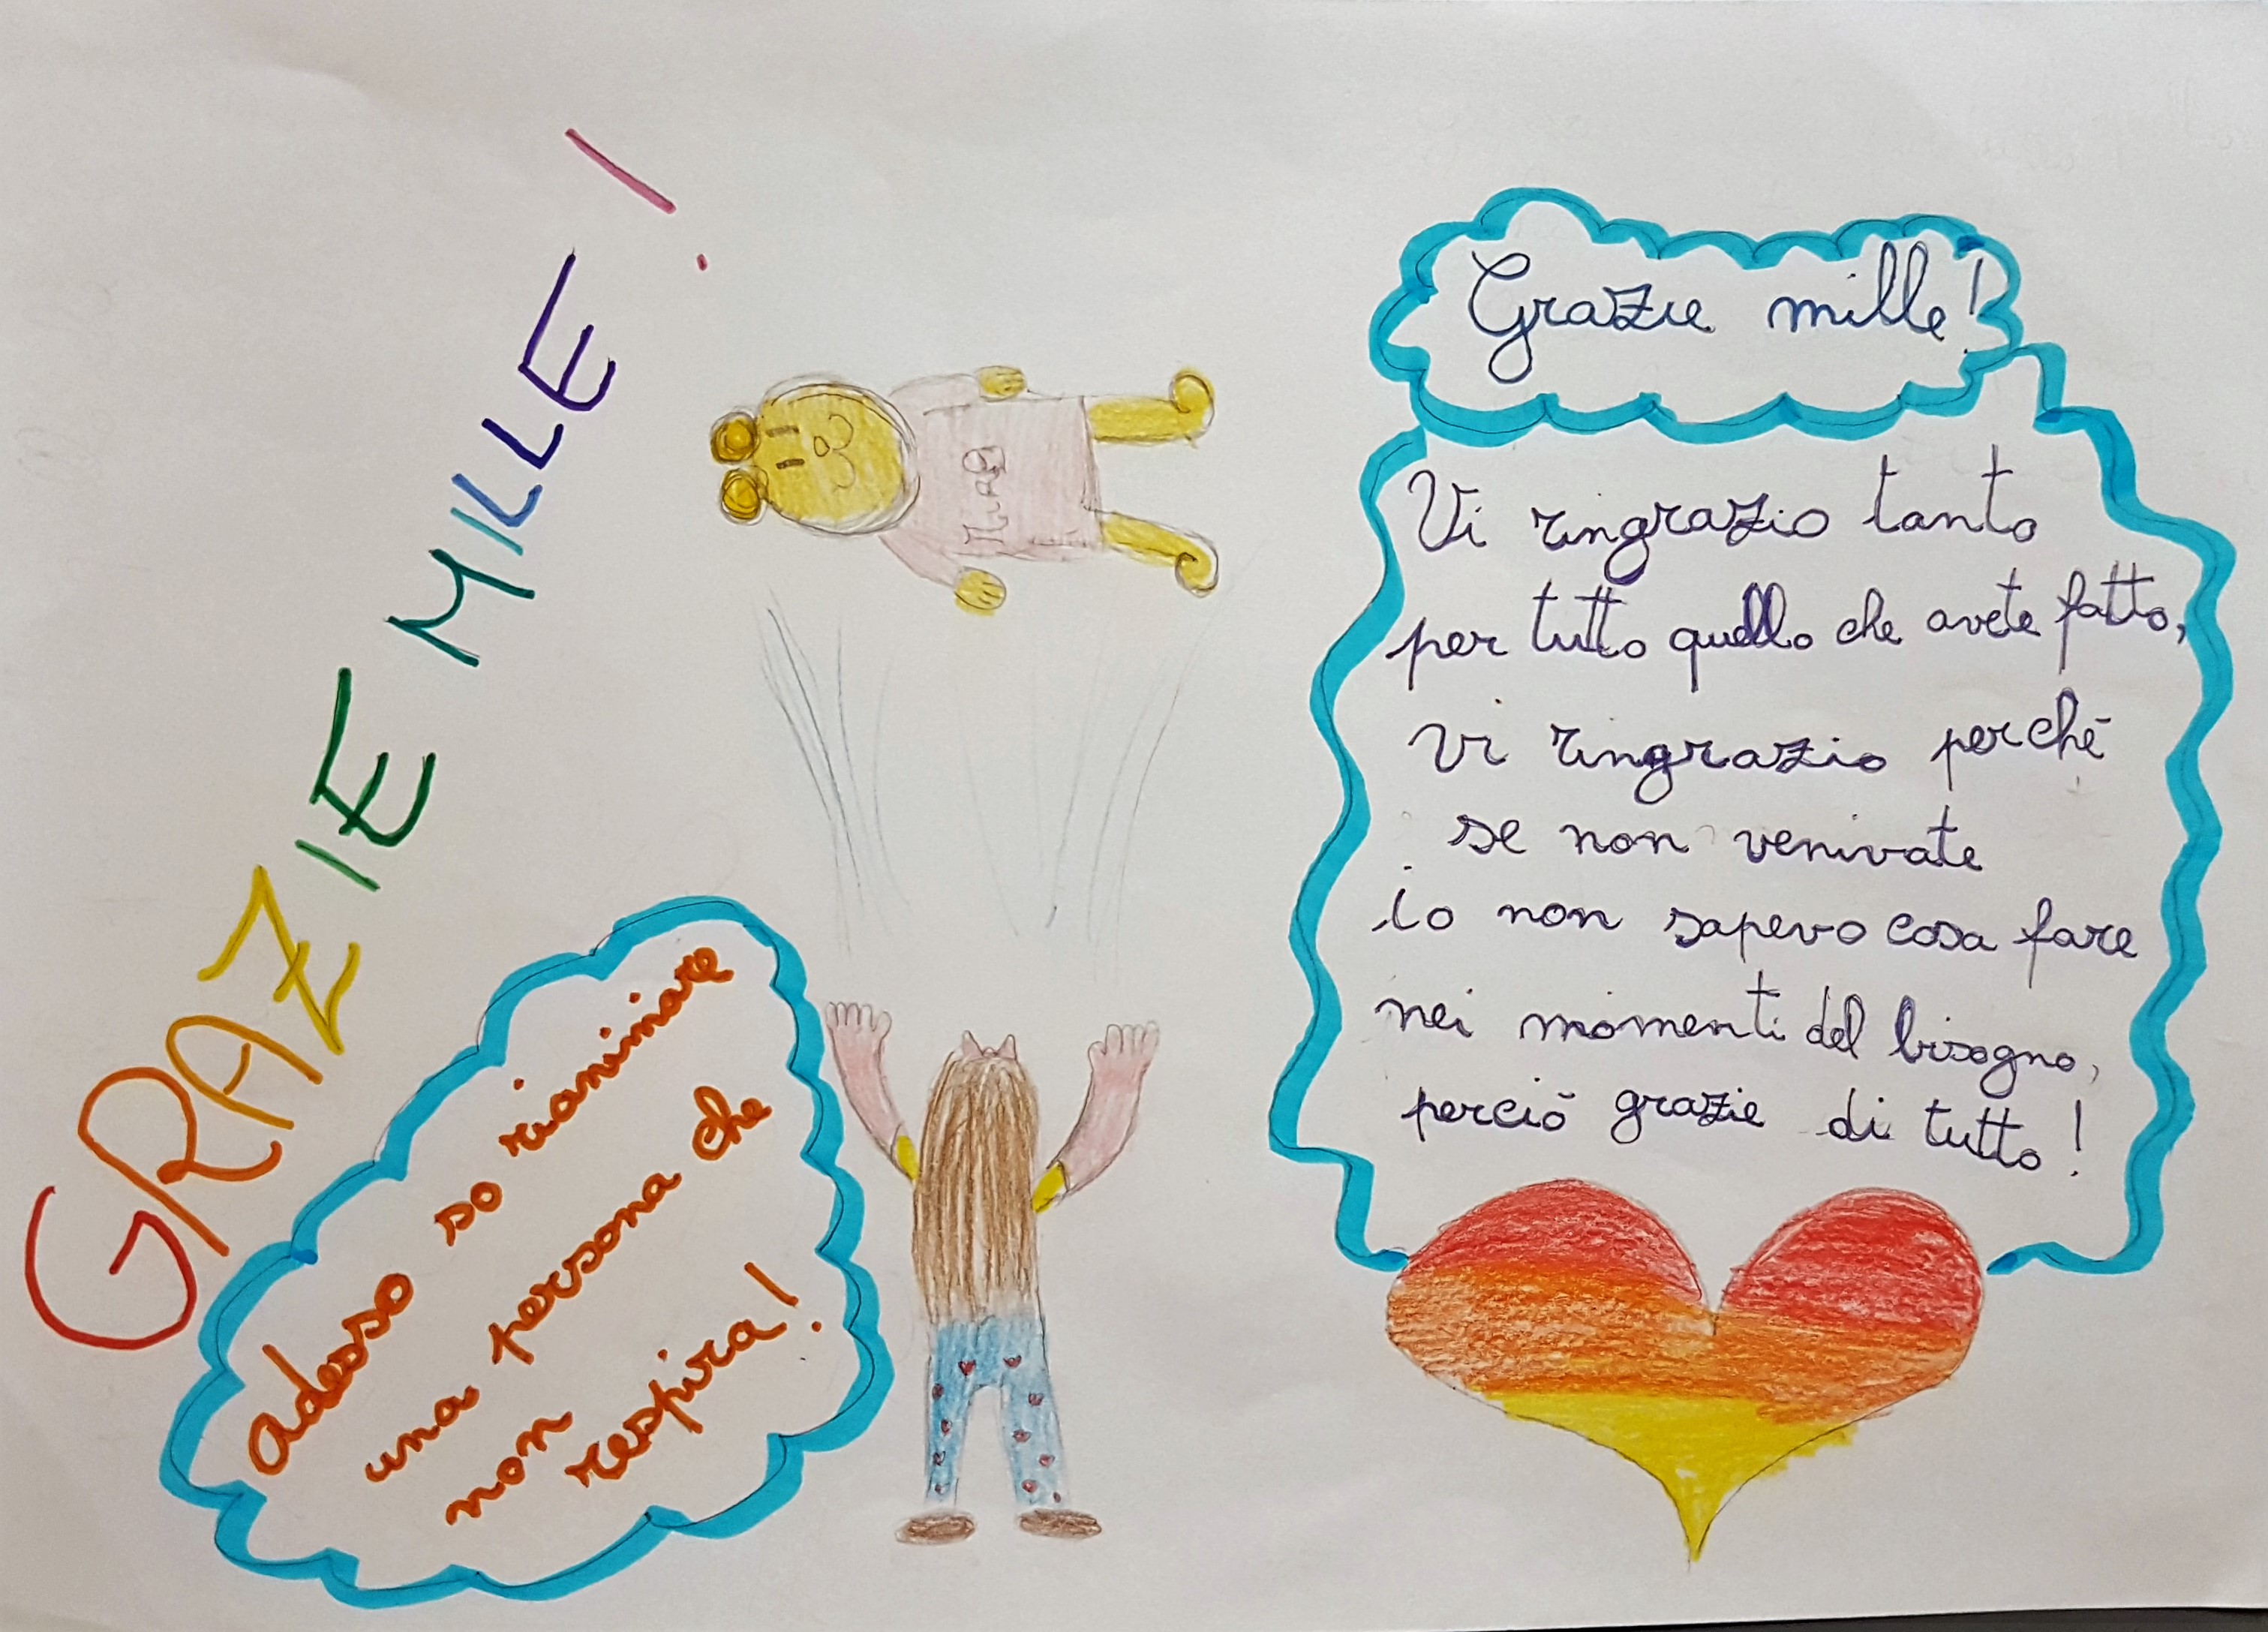 GRAZIE MILLE!
adesso so rianimare
una persona che
non
respira!
Grazie mille!
Vi ringrazio tanto
per tutto quello che avete fatto,
vi ringrazio perchē
se non venivate
io non sapevo cosa fare
nei momenti del bisogno,
perciō grazie di tutto!